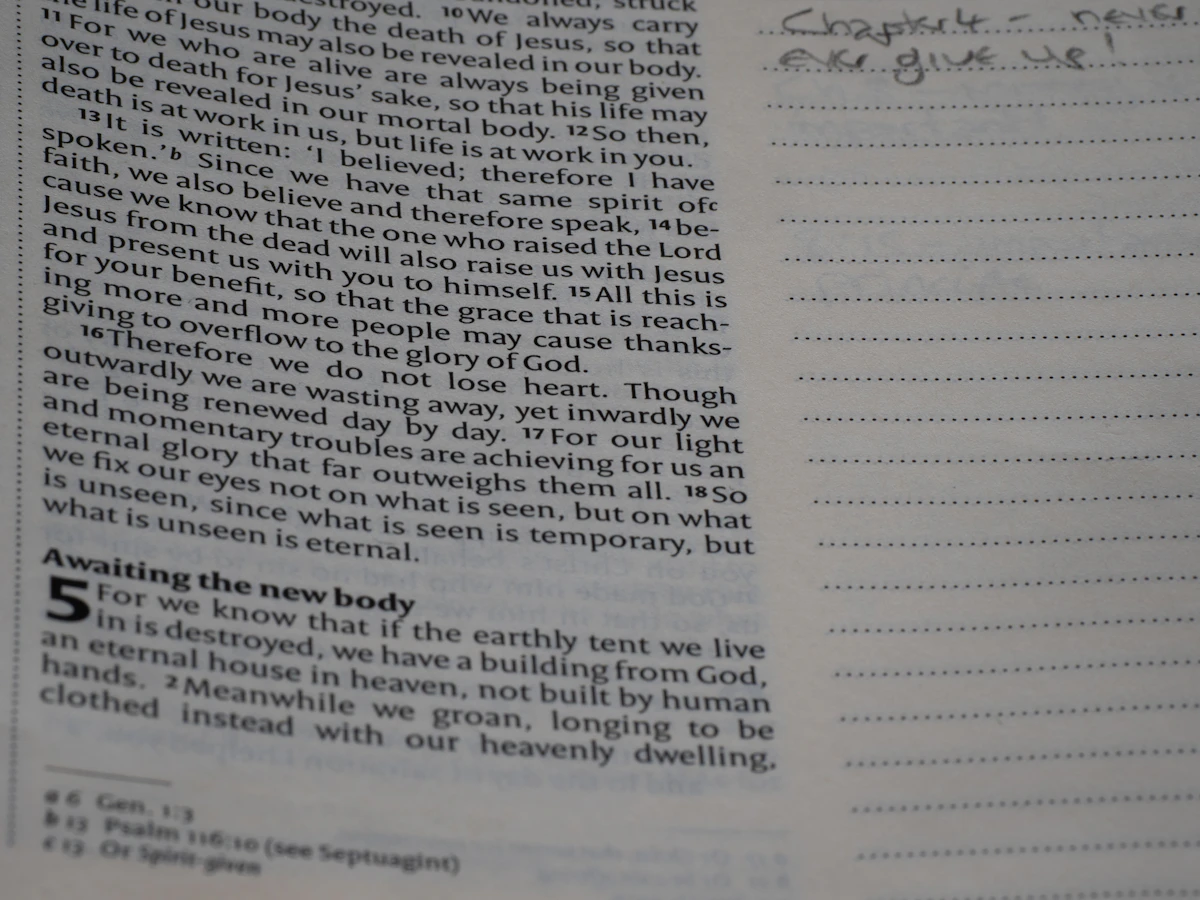 stroyed. 10 We always carry
our body the death of Jesus, so that
the life of Jesus may also be revealed in our body.
11 For we who are alive are always being given
over to death for Jesus' sake, so that his life may
also be revealed in our mortal body. 12 So then,
death is at work in us, but life is at work in you.
13 It is written: 'I believed; therefore I have
spoken.'b Since we have that same spirit ofc
faith, we also believe and therefore speak, 14 be-
cause we know that the one who raised the Lord
Jesus from the dead will also raise us with Jesus
and present us with you to himself. 15 All this is
for your benefit, so that the grace that is reach-
ing more and more people may cause thanks-
giving to overflow to the glory of God.
16 Therefore we do not lose heart. Though
outwardly we are wasting away, yet inwardly we
are being renewed day by day. 17 For our light
and momentary troubles are achieving for us an
eternal glory that far outweighs them all. 18 So
we fix our eyes not on what is seen, but on what
is unseen, since what is seen is temporary, but
what is unseen is eternal.
Awaiting the new body
5 For we know that if the earthly tent we live
in is destroyed, we have a building from God,
an eternal house in heaven, not built by human
hands. 2 Meanwhile we groan, longing to be
clothed instead with our heavenly dwelling,
a 6 Gen. 1:3
b 13 Psalm 116:10 (see Septuagint)
c 13 Or Spirit-given
Chapter 4 - never
ever give up!